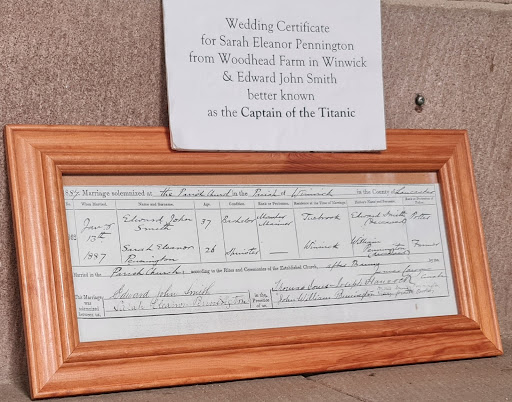 Wedding Certificate
for Sarah Eleanor Pennington
from Woodhead Farm in Winwick
& Edward John Smith
better known
as the Captain of the Titanic
1887. Marriage solemnized at the Parish Church in the Parish of Winwick in the County of Lancaster
When Married. Name and Surname. Age. Condition. Rank or Profession. Residence at the Time of Marriage. Father's Name and Surname. Rank or Profession of Father.
Jany 13th 1887
Edward John Smith 37 Bachelor Master Mariner Tuebrook Edward Smith (deceased) Potter
Sarah Eleanor Pennington 26 Spinster Winwick William Pennington (deceased) Farmer
Married in the Parish Church according to the Rites and Ceremonies of the Established Church, after Banns
This Marriage was solemnized between us, Edward John Smith
Sarah Eleanor Pennington
in the Presence of us, Thomas Jones
John William